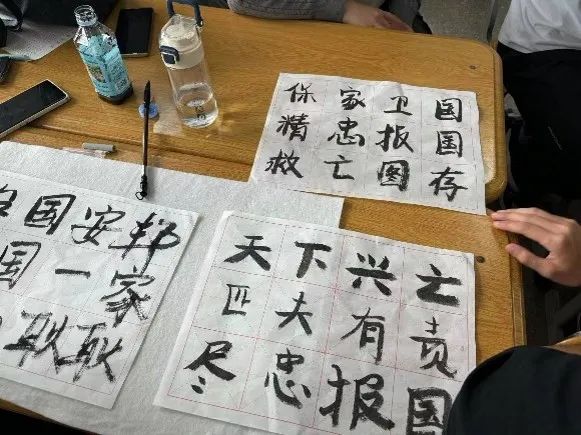 保家卫国
精忠报国
救亡图存
国安邦
国一家
耿耿
天下兴亡
匹夫有责
尽忠报国